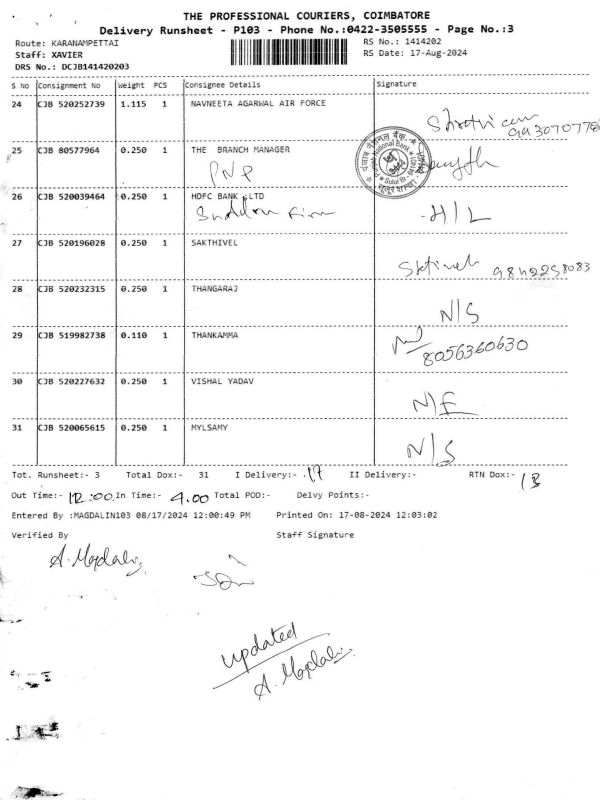 THE PROFESSIONAL COURIERS, COIMBATORE
Delivery Runsheet - P103 - Phone No.:0422-3505555 - Page No.:3
Route: KARANAMPETTAI RS No.: 1414202
Staff: XAVIER RS Date: 17-Aug-2024
DRS No.: DCJB141420203
S No Consignment No Weight PCS Consignee Details Signature
24 CJB 520252739 1.115 1 NAVNEETA AGARWAL AIR FORCE
25 CJB 80577964 0.250 1 THE BRANCH MANAGER
PNP
26 CJB 520039464 0.250 1 HDFC BANK LTD
H/L
27 CJB 520196028 0.250 1 SAKTHIVEL
9842258083
28 CJB 520232315 0.250 1 THANGARAJ
N/S
29 CJB 519982738 0.110 1 THANKAMMA
8056360630
30 CJB 520227632 0.250 1 VISHAL YADAV
N/E
31 CJB 520065615 0.250 1 MYLSAMY
N/S
Tot. Runsheet:- 3 Total Dox:- 31 I Delivery:- 17 II Delivery:- RTN Dox:- 13
Out Time:- 12:00 In Time:- 4.00 Total POD:- Delvy Points:-
Entered By :MAGDALIN103 08/17/2024 12:00:49 PM Printed On: 17-08-2024 12:03:02
Verified By Staff Signature
A. Magdalin
updated
A. Magdalin